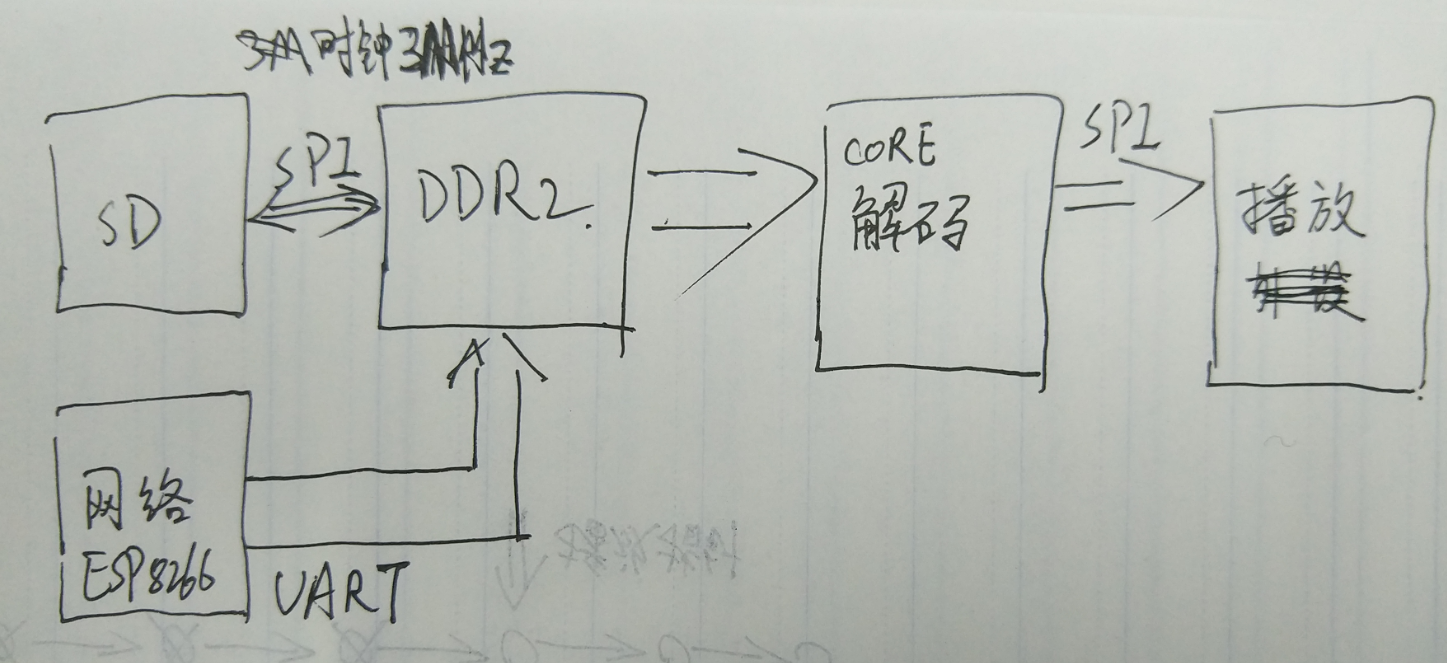 3M时钟3MHz
SD
SPI
DDR2.
CORE
解码
SPI
播放
网络
ESP8266
UART